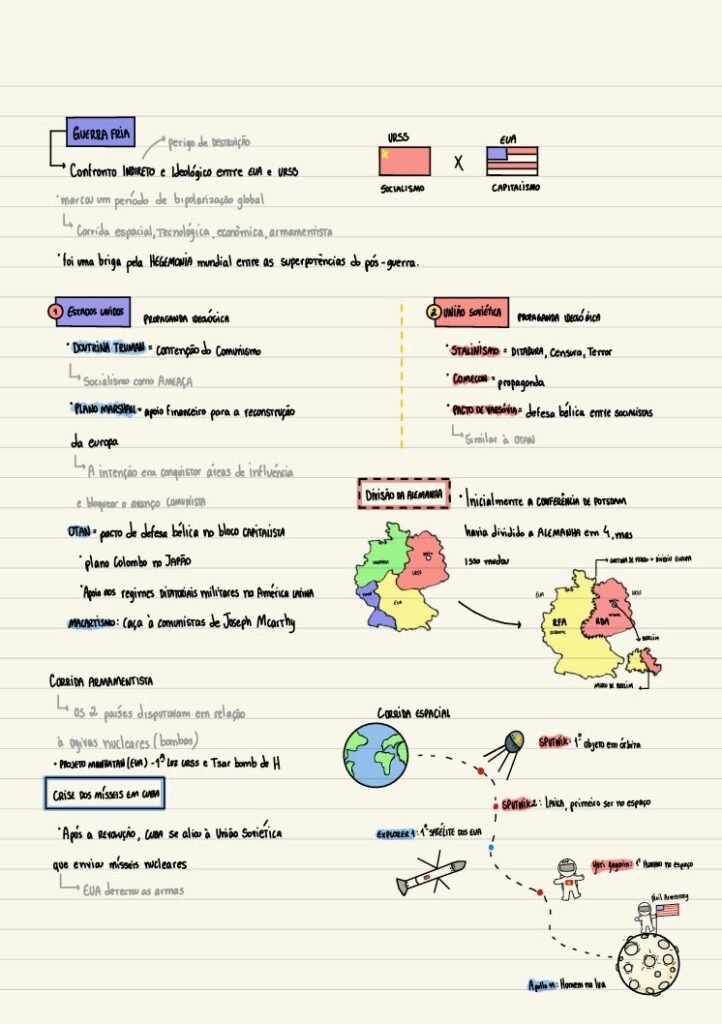 GUERRA FRIA
perigo de DESTRUIÇÃO
Confronto INDIRETO e Ideológico entre EUA e URSS
URSS
SOCIALISMO
X
EUA
CAPITALISMO
•marcou um período de bipolarização global
Corrida espacial, Tecnológica, econômica, armamentista
•foi uma briga pela HEGEMONIA mundial entre as superpotências do pós-guerra.
1 ESTADOS UNIDOS PROPAGANDA IDEOLÓGICA
•DOUTRINA TRUMAN = contenção do Comunismo
Socialismo como AMEAÇA
•PLANO MARSHALL = apoio financeiro para a reconstrução
da europa
A intenção era conquistar áreas de influência
e bloquear o avanço COMUNISTA
OTAN = pacto de defesa bélica no bloco CAPITALISTA
•plano Colombo no JAPÃO
•Apoio aos regimes DITATORIAIS militares na América LATINA
MACARTISMO: Caça à comunistas de Joseph Mcarthy
2 UNIÃO SOVIÉTICA PROPAGANDA IDEOLÓGICA
•STALINISMO = DITADURA, Censura, Terror
•COMECON = propaganda
•PACTO DE VARSÓVIA = defesa bélica entre SOCIALISTAS
Similar à OTAN
DIVISÃO DA ALEMANHA
•Inicialmente a CONFERÊNCIA DE POTSDAM
havia dividido a ALEMANHA em 4, mas
isso mudou
URSS
EUA
CORTINA DE FERRO = DIVIDIU EUROPA
EUA
URSS
RFA
RDA
BERLIM
MURO DE BERLIM
CORRIDA ARMAMENTISTA
OS 2 países disputavam em relação
à ogivas nucleares (bombas)
•PROJETO MANHATAN (EUA) - 1ª LUZ URSS e Tsar bomb de H
CRISE DOS MÍSSEIS EM CUBA
•Após a REVOLUÇÃO, CUBA se aliou à União Soviética
que enviou mísseis nucleares
EUA detectou as armas
CORRIDA ESPACIAL
SPUTNIK: 1° objeto em órbita
SPUTNIK2: LAIKA, primeiro ser no espaço
EXPLORER 1: 1° SATÉLITE DOS EUA
Yuri gagarin: 1° Humano no espaço
Neil Armstrong
Apollo 11: Homem na lua